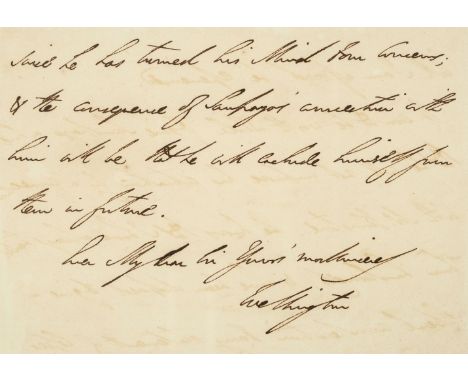 since he has turned his Mind from concerns;
& the consequence of connection with
him will be that he will exclude himself from
them in future.
Ever My dear Sir Yours' most sincerely
Wellington